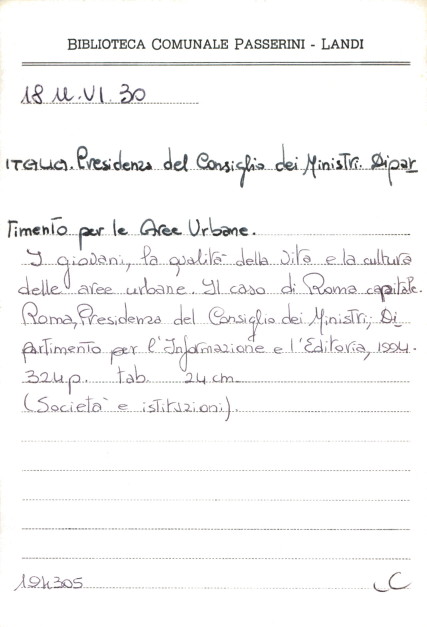 BIBLIOTECA COMUNALE PASSERINI - LANDI
18 U.VI.30
ITALIA. Presidenza del Consiglio dei Ministri. Dipar
Timento per le Aree Urbane.
I giovani, la qualità della vita e la cultura
delle aree urbane. Il caso di Roma capitale.
Roma, Presidenza del Consiglio dei Ministri, Di
partimento per l'Informazione e l'Editoria, 1994.
324 p. tab. 24 cm.
(Società e istituzioni).
194305